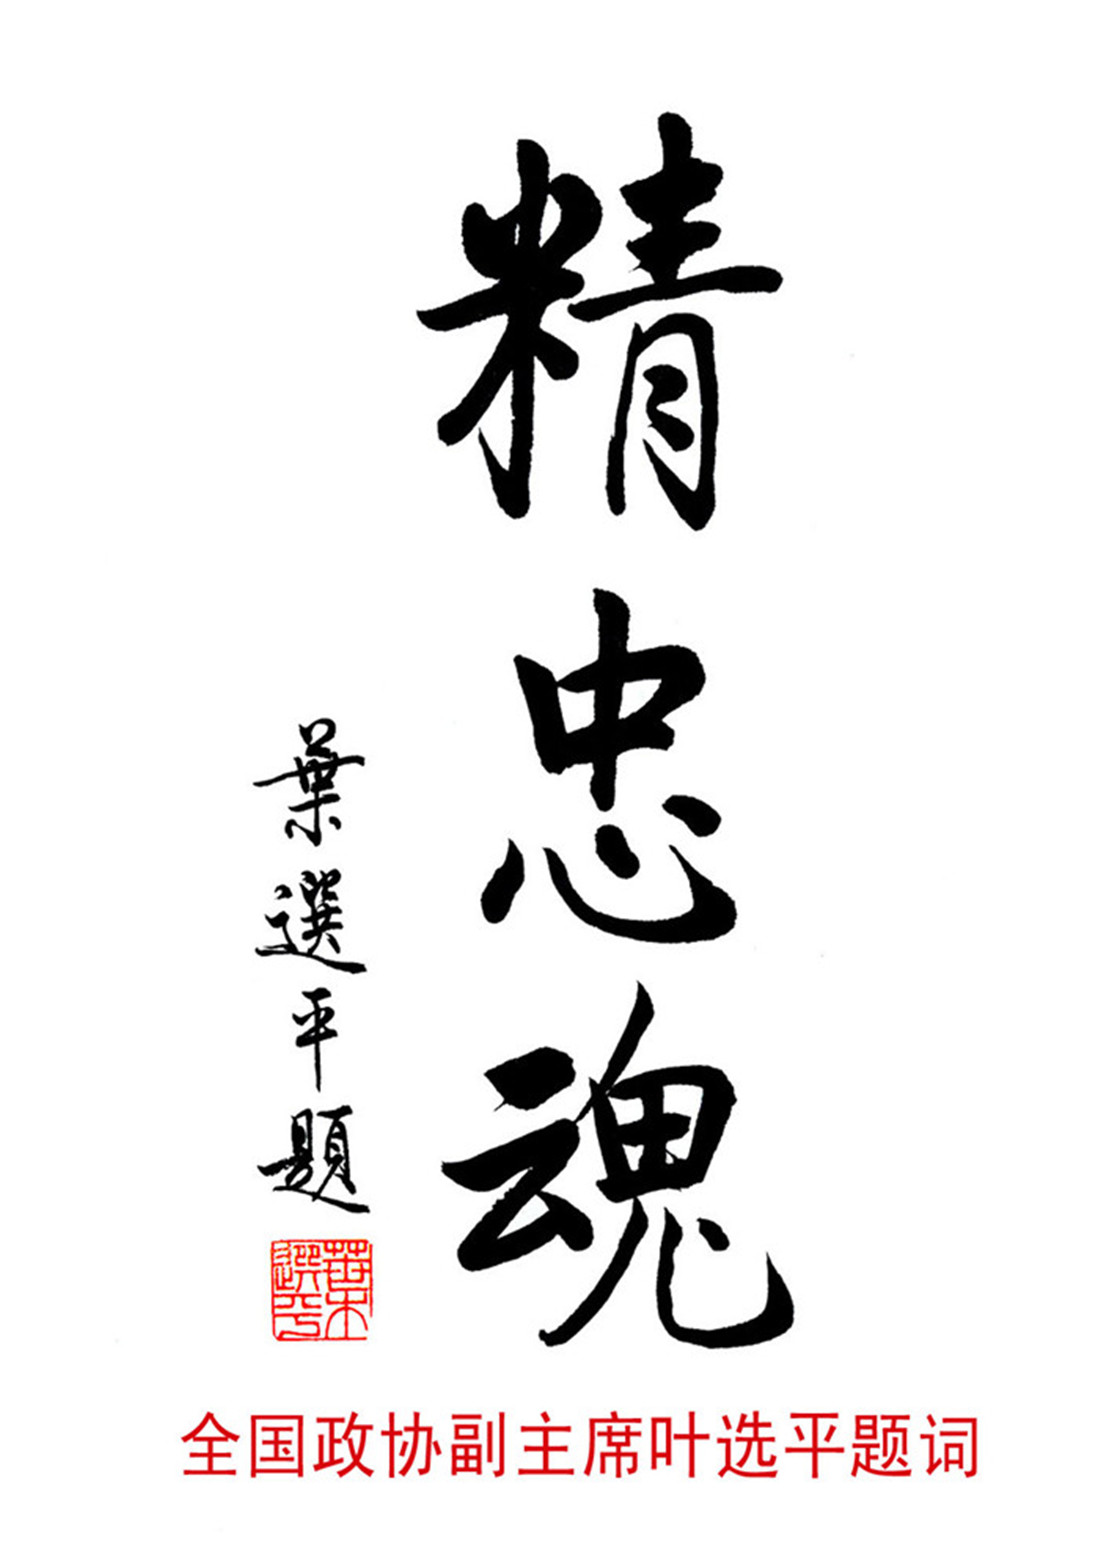 精忠魂
葉選平題
葉選平
全国政协副主席叶选平题词